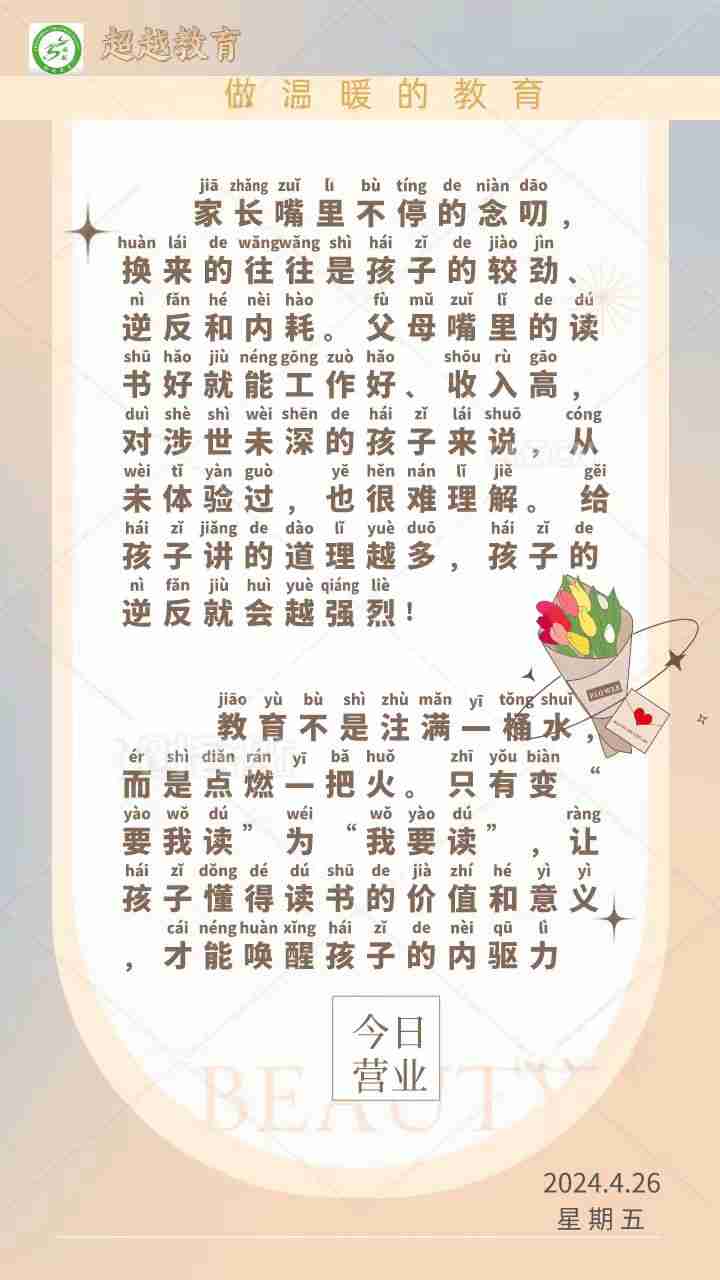 超越教育
做温暖的教育
jiā zhǎng zuǐ lǐ bù tíng de niàn dāo
家长嘴里不停的念叨，
huàn lái de wǎngwǎng shì hái zǐ de jiào jìn
换来的往往是孩子的较劲、
nì fǎn hé nèi hào fù mǔ zuǐ lǐ de dú
逆反和内耗。父母嘴里的读
shū hǎo jiù néng gōng zuò hǎo shōu rù gāo
书好就能工作好、收入高，
duì shè shì wèi shēn de hái zǐ lái shuō cóng
对涉世未深的孩子来说，从
wèi tǐ yàn guò yě hěn nán lǐ jiě gěi
未体验过，也很难理解。给
hái zǐ jiǎng de dào lǐ yuè duō hái zǐ de
孩子讲的道理越多，孩子的
nì fǎn jiù huì yuè qiáng liè
逆反就会越强烈！
jiāo yù bù shì zhù mǎn yī tǒng shuǐ
教育不是注满一桶水，
ér shì diǎn rán yī bǎ huǒ zhī yǒu biàn
而是点燃一把火。只有变“
yào wǒ dú wéi wǒ yào dú ràng
要我读”为“我要读”，让
hái zǐ dǒng dé dú shū de jià zhí hé yì yì
孩子懂得读书的价值和意义
cái néng huàn xǐng hái zǐ de nèi qū lì
，才能唤醒孩子的内驱力
FLOWER
今日
营业
BEAUTY
2024.4.26
星期五